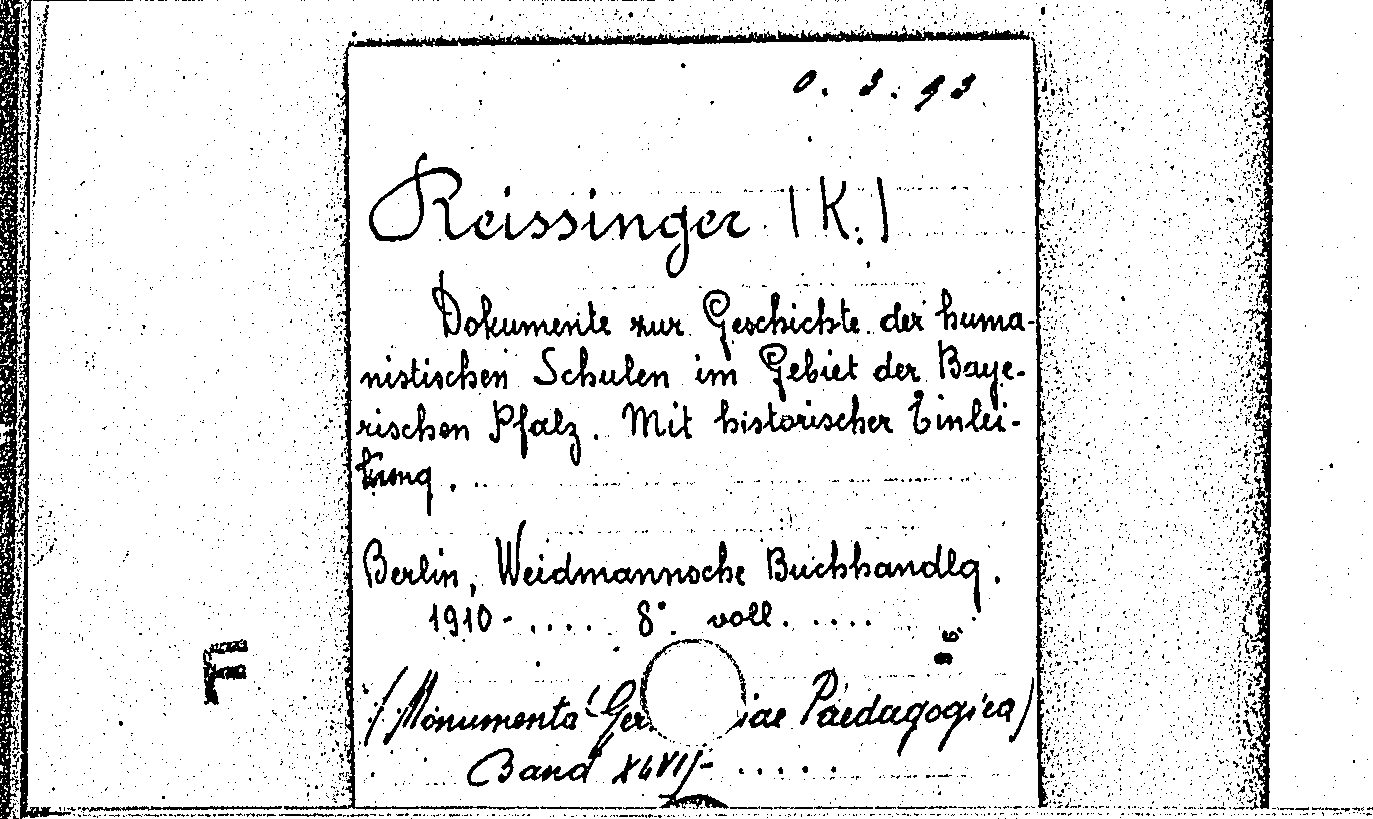 0. 3. 93
Reissinger (K.)
Dokumente zur Geschichte der huma-
nistischen Schulen im Gebiet der Baye-
rischen Pfalz. Mit historischer Einlei-
tung.
Berlin, Weidmannsche Buchhandlg.
1910-.... 8°. voll. ....
F
(Monumenta Ger iae Paedagogica)
Band XLVII- .....